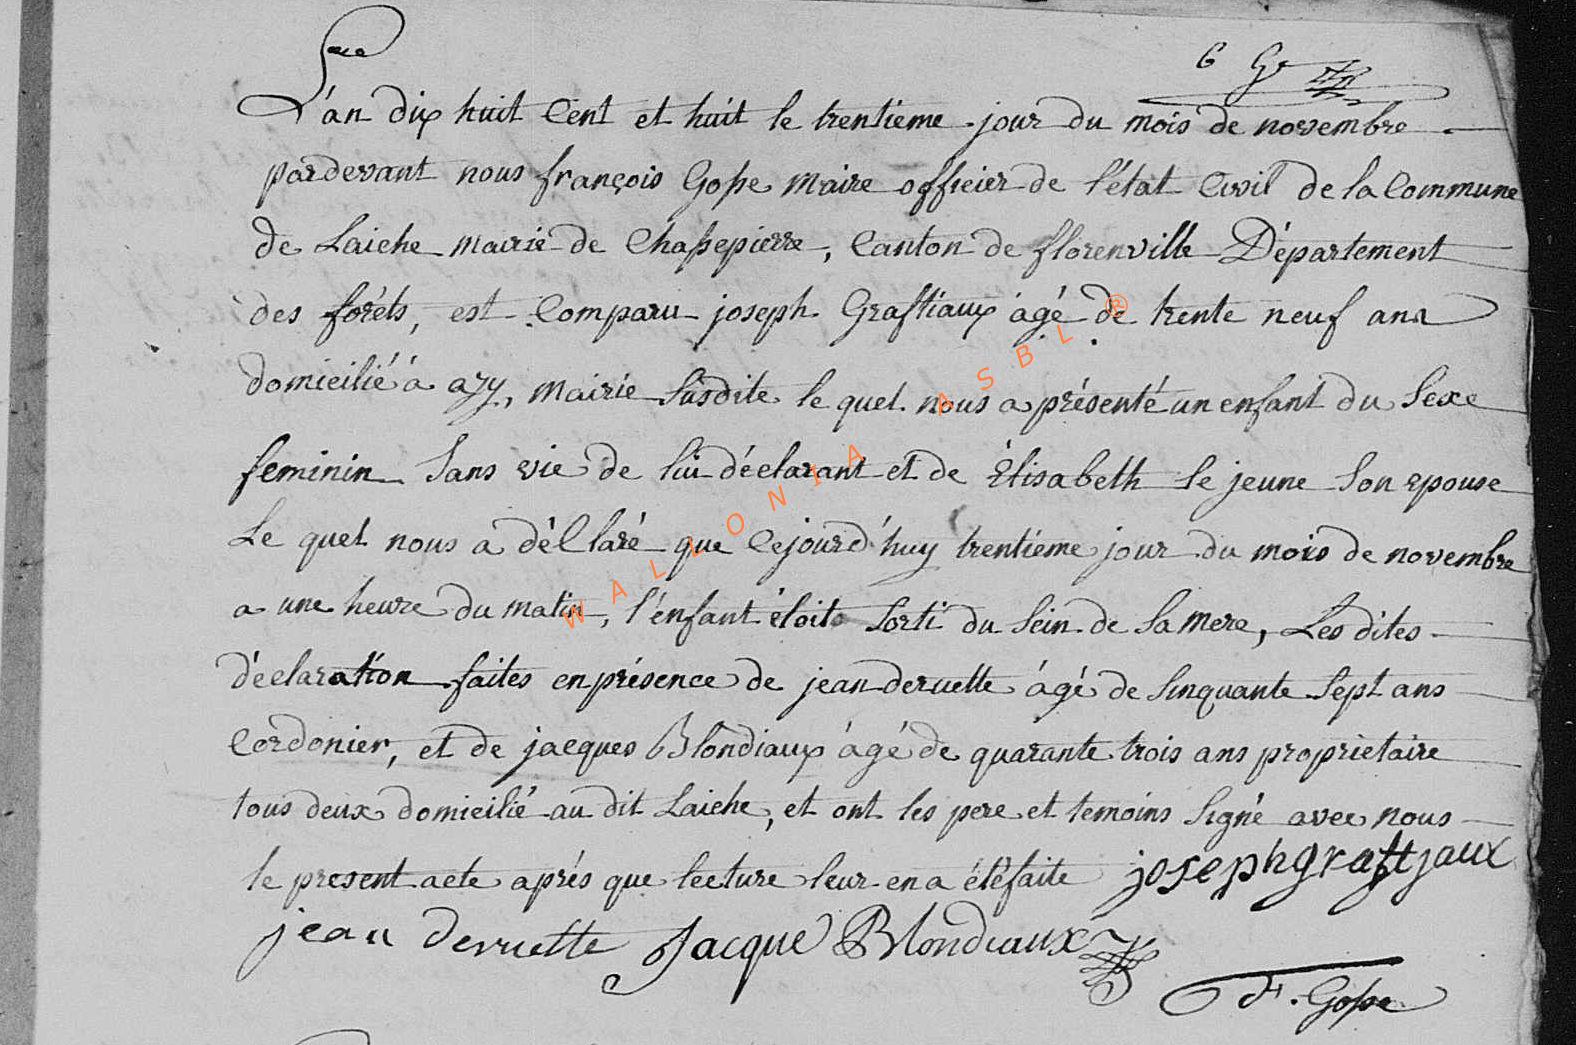 6 G
L'an dix huit Cent et huit le trentieme jour du mois de novembre
pardevant nous françois Gosse Maire officier de l'état Civil de la Commune
de Laiche Mairie de Chassepierre, Canton de florenville Département
des forêts, est Comparu joseph Graftiaux âgé de trente neuf ans
domicilié à azy, Mairie susdite le quel nous a présenté un enfant du Sexe
feminin Sans vie de lui déclarant et de Elisabeth le jeune Son epouse
Le quel nous a déClaré que Cejourd'huy trentieme jour du mois de novembre
a une heure du matin, l'enfant étoit Sorti du Sein de Sa Mere, Les dites
déclaration faites en présence de jean deruette âgé de Sinquante Sept ans
Cordonier, et de jacques Blondiaux âgé de quarante trois ans proprietaire
tous deux domicilié au dit Laiche, et ont les pere et temoins Signé avec nous
le present acte aprés que lecture leur en a été faite joseph graftjaux
jean deruette Jacque Blondiaux
F. Gosse
WALLONIA ASBL ®